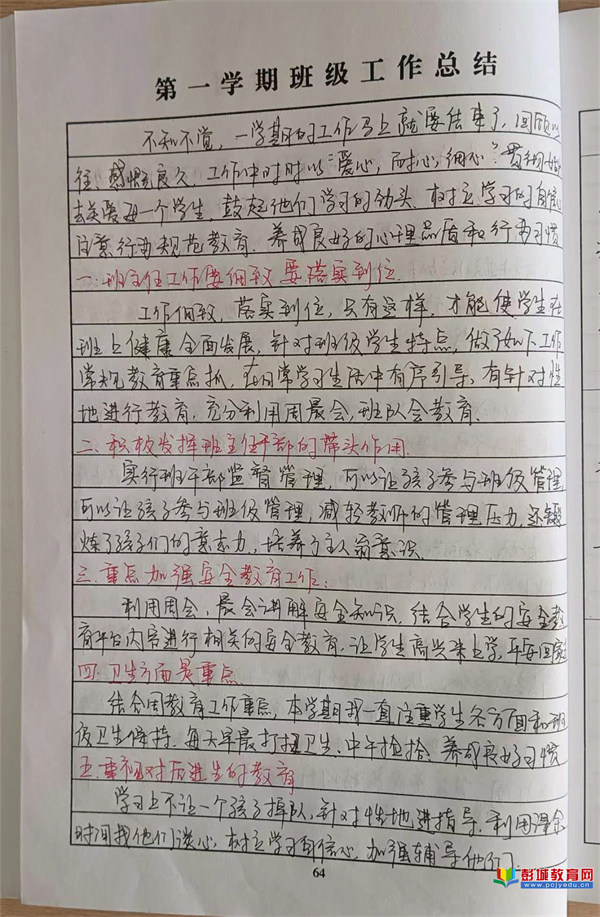 第一学期班级工作总结
不知不觉，一学期的工作马上就要结束了，回顾以
往，感慨良久，工作中时时以“爱心，耐心，细心”贯彻始终
去关爱每一个学生，鼓起他们学习的劲头，树立学习的自信心
注意行为规范教育，养成良好的心理品质和行为习惯
一.班主任工作要细致 要落实到位.
工作细致，落实到位，只有这样，才能使学生在
班上健康全面发展，针对班级学生特点，做了如下工作
常规教育重点抓，在日常学习生活中有序引导，有针对性
地进行教育，充分利用周晨会，班队会教育.
二.积极发挥班主任干部的带头作用.
实行班干部监督管理，可以让孩子参与班级管理
可以让孩子参与班级管理，减轻教师的管理压力，还锻
炼了孩子们的意志力，培养了主人翁意识.
三.重点加强安全教育工作：
利用周会，晨会讲解安全知识，结合学生的安全教
育平台内容进行相关的安全教育，让学生高兴来上学，平安回家
四.卫生方面是重点.
结合周教育工作重点，本学期我一直注重学生各方面和班
级卫生保持，每天早晨打扫卫生，中午检拾，养成良好习惯
五.重视对后进生的教育
学习上不让一个孩子掉队，针对性地进指导，利用课余
时间找他们谈心，树立学习自信心，加强辅导他们.
64
彭城教育网
www.pcjyedu.cn